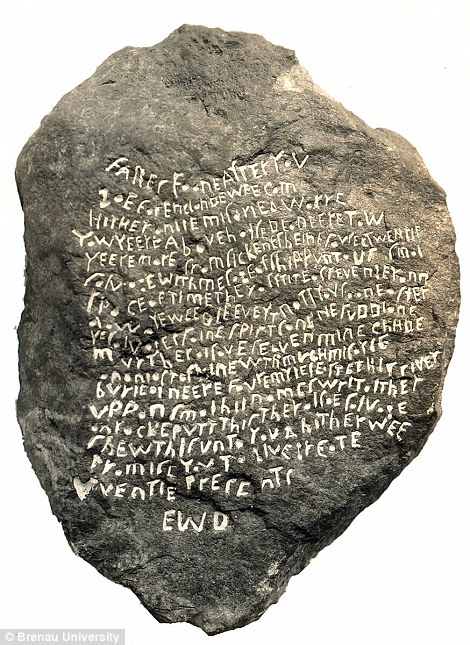 FATHER SOONE AFTER YOV
GOE FOR ENGLANDE WEE CAM
HITHER ONLIE MISARIE & WARRE
TOW YEERE ABOVE HALFE DEADE ERE TOW
YEERE MORE FROM SICKENES BEINE FOVRE & TWENTIE
SALVAGE WITH MESAGE OF SHIPP VNTO VS SMAL
SPACE OF TIME THEY AFFRITE OF REVENGE RANN
AL AWAYE WEE BLEEVE YT NOTT YOV SOONE AFTER
YE SALVAGES FAINE SPIRTS ANGRIE SUDDIANE
MVRTHER AL SAVE SEAVEN MINE CHILDE
ANANIAS TO SLAINE WYTH MVCH MISARIE
BVRIE AL NEERE FOVRE MYLES EASTE THIS RIVER
VPPON SMAL HIL NAMES WRIT AL THER
ON ROCKE PVTT THIS THER ALSOE SALVAGE
SHEW THIS VNTO YOV & HITHER WEE
PROMISE YOV TO GIVE GREATE
PLENTIE PRESENTS
EWD
© Brenau University